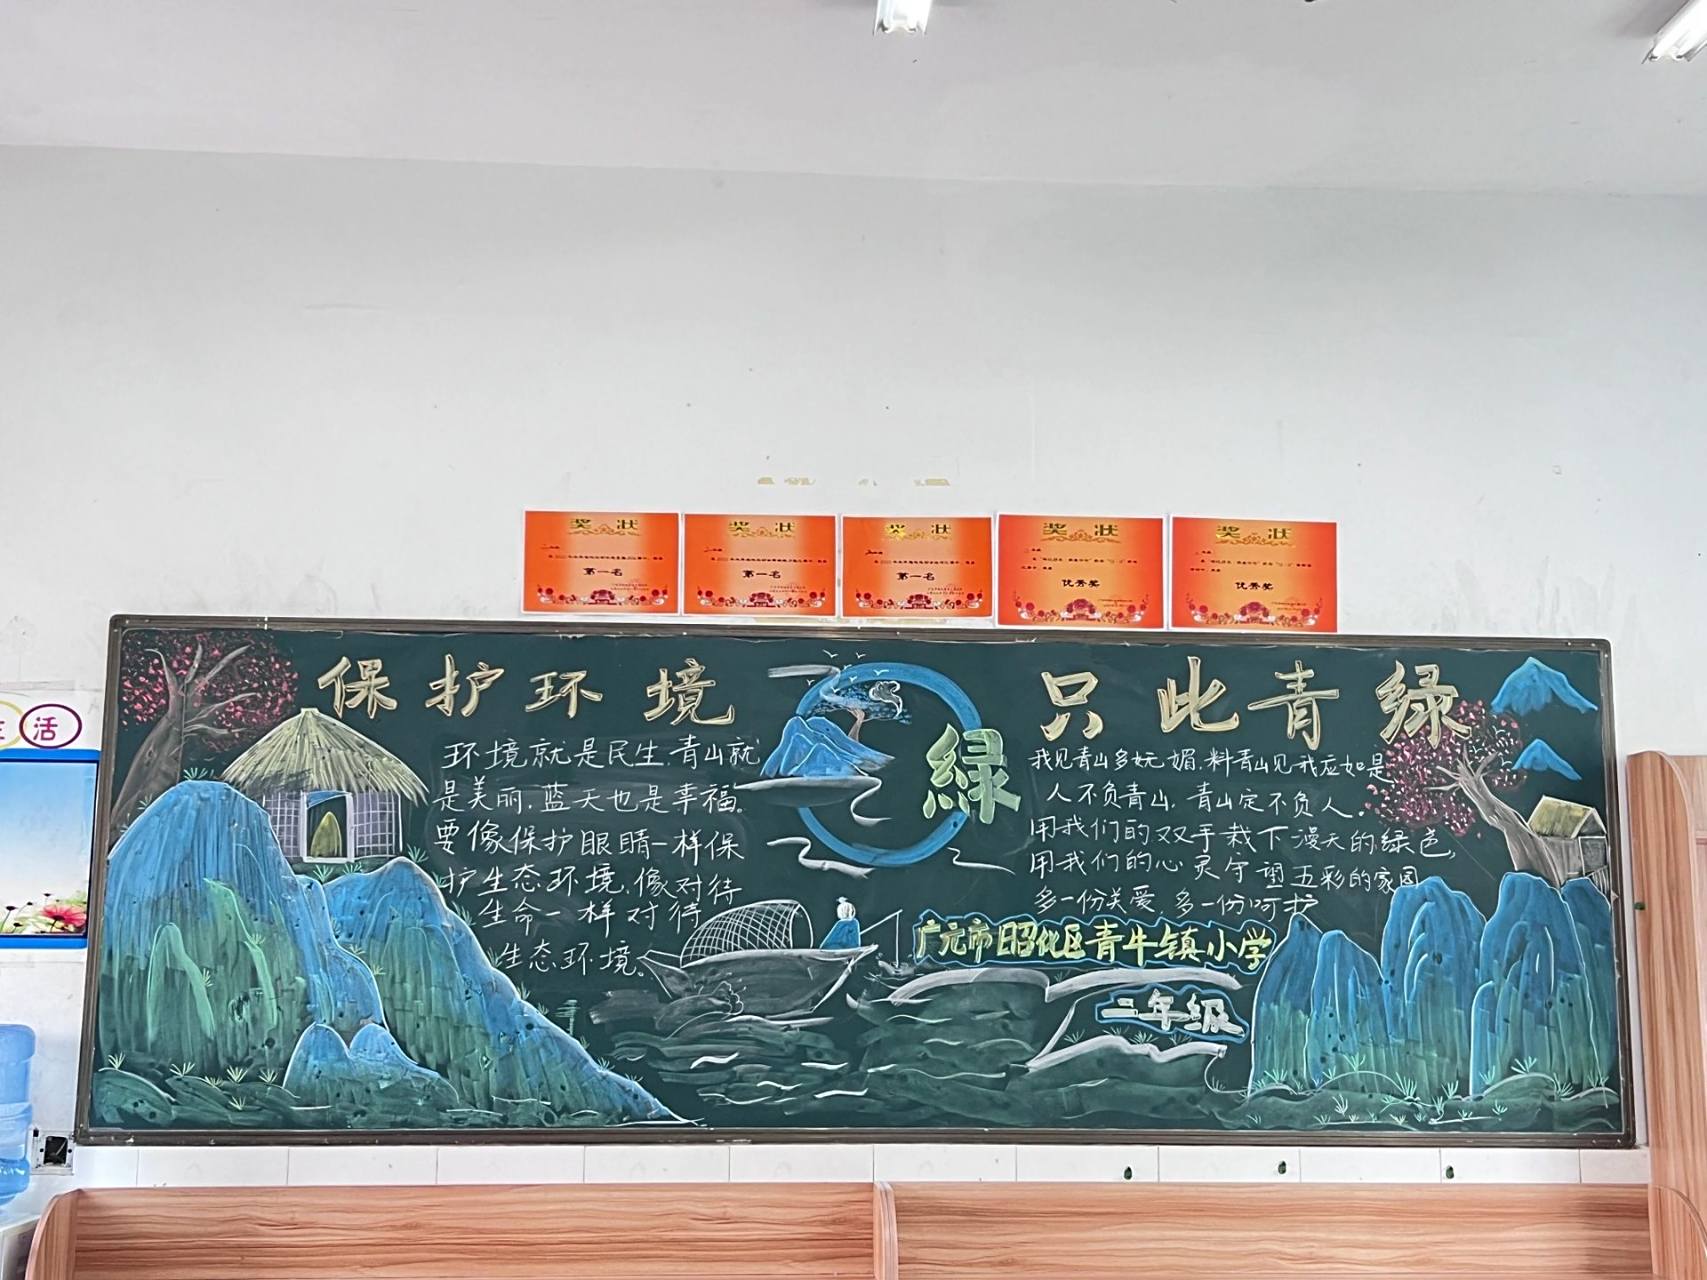 奖状
第一名
奖状
第一名
奖状
第一名
奖状
优秀奖
奖状
优秀奖
活
保护环境
环境就是民生,青山就
是美丽,蓝天也是幸福。
要像保护眼睛一样保
护生态环境,像对待
生命一样对待
生态环境。
緑
只此青绿
我见青山多妩媚,料青山见我应如是
人不负青山,青山定不负人。
用我们的双手栽下漫天的绿色,
用我们的心灵守望五彩的家园
多一份关爱,多一份呵护
广元市昭化区青牛镇小学
二年级